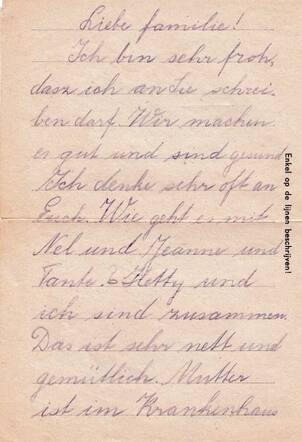 Liebe familie!
Ich bin sehr froh,
dasz ich an Sie schrei-
ben darf. Wir machen
es gut und sind gesund
Ich denke sehr oft an
Euch. Wie geht es mit
Nel und Jeanne und
Tante. Hetty und
ich sind zusammen.
Das ist sehr nett und
gemütlich. Mutter
ist im Krankenhaus
Enkel op de lijnen beschrijven!